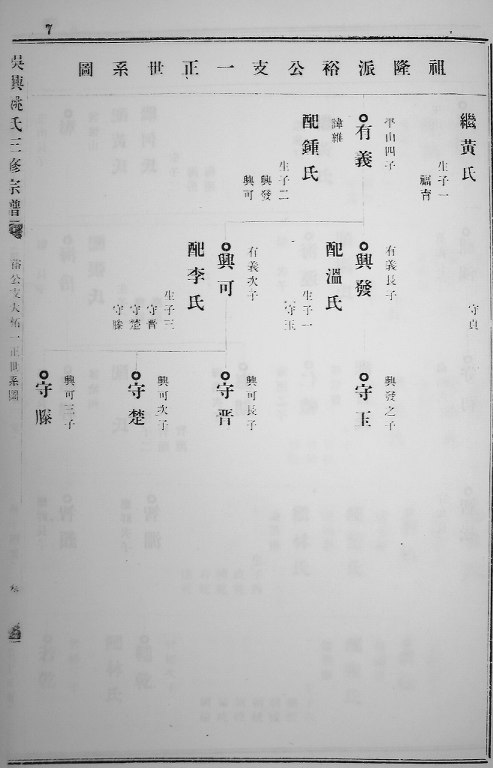 7
祖隆派裕公支一正世系圖
吳興姚氏三修宗譜
裕公支大祐一正世系圖
繼黃氏
生子一
福育
守貞
平山四子
有義
諱雜
配鍾氏
生子二
興發
興可
有義長子
興發
配溫氏
生子一
守玉
有義次子
興可
配李氏
生子三
守晋
守楚
守滕
興發之子
守玉
興可長子
守晋
興可次子
守楚
興可三子
守滕